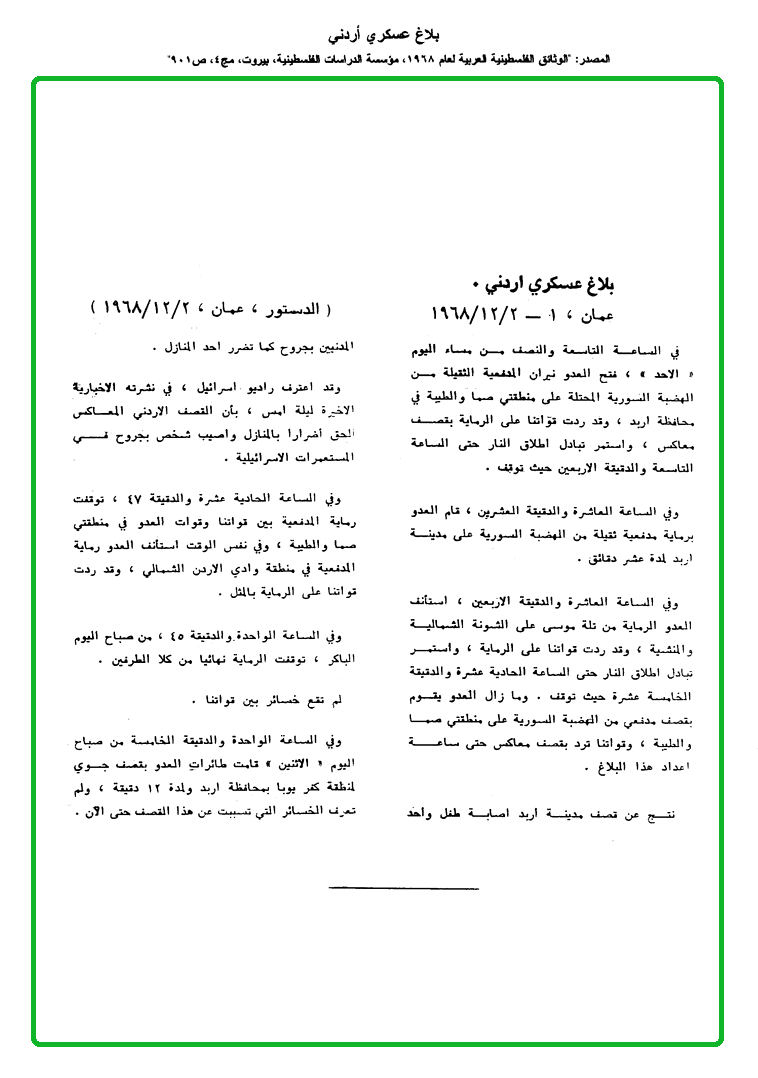 بلاغ عسكري أردني
المصدر: "الوثائق الفلسطينية العربية لعام ١٩٦٨، مؤسسة الدراسات الفلسطينية، بيروت، مج٤، ص٩٠١"
بلاغ عسكري اردني ٠
عمان ، ١ — ١٩٦٨/١٢/٢
في الساعة التاسعة والنصف من مساء اليوم
« الاحد » ، فتح العدو نيران المدفعية الثقيلة من
الهضبة السورية المحتلة على منطقتي صما والطيبة في
محافظة اربد ، وقد ردت قواتنا على الرماية بقصف
معاكس ، واستمر تبادل اطلاق النار حتى الساعة
التاسعة والدقيقة الاربعين حيث توقف .
وفي الساعة العاشرة والدقيقة العشرين ، قام العدو
برماية مدفعية ثقيلة من الهضبة السورية على مدينة
اربد لمدة عشر دقائق .
وفي الساعة العاشرة والدقيقة الاربعين ، استأنف
العدو الرماية من تلة موسى على الشونة الشمالية
والمنشية ، وقد ردت قواتنا على الرماية ، واستمر
تبادل اطلاق النار حتى الساعة الحادية عشرة والدقيقة
الخامسة عشرة حيث توقف . وما زال العدو يقوم
بقصف مدفعي من الهضبة السورية على منطقتي صما
والطيبة ، وقواتنا ترد بقصف معاكس حتى ساعة
اعداد هذا البلاغ .
نتج عن قصف مدينة أربد اصابة طفل واحد
( الدستور ، عمان ، ١٩٦٨/١٢/٢ )
المدنيين بجروح كما تضرر احد المنازل .
وقد اعترف راديو اسرائيل ، في نشرته الاخبارية
الاخيرة ليلة امس ، بأن القصف الاردني المعاكس
الحق أضرارا بالمنازل واصيب شخص بجروح في
المستعمرات الاسرائيلية .
وفي الساعة الحادية عشرة والدقيقة ٤٧ ، توقفت
رماية المدفعية بين قواتنا وقوات العدو في منطقتي
صما والطيبة ، وفي نفس الوقت استأنف العدو رماية
المدفعية في منطقة وادي الاردن الشمالي ، وقد ردت
قواتنا على الرماية بالمثل .
وفي الساعة الواحدة والدقيقة ٤٥ ، من صباح اليوم
الباكر ، توقفت الرماية نهائيا من كلا الطرفين .
لم تقع خسائر بين قواتنا .
وفي الساعة الواحدة والدقيقة الخامسة من صباح
اليوم « الاثنين » قامت طائرات العدو بقصف جوي
لمنطقة كفر يوبا بمحافظة اربد ولمدة ١٢ دقيقة ، ولم
تعرف الخسائر التي تسببت عن هذا القصف حتى الآن .